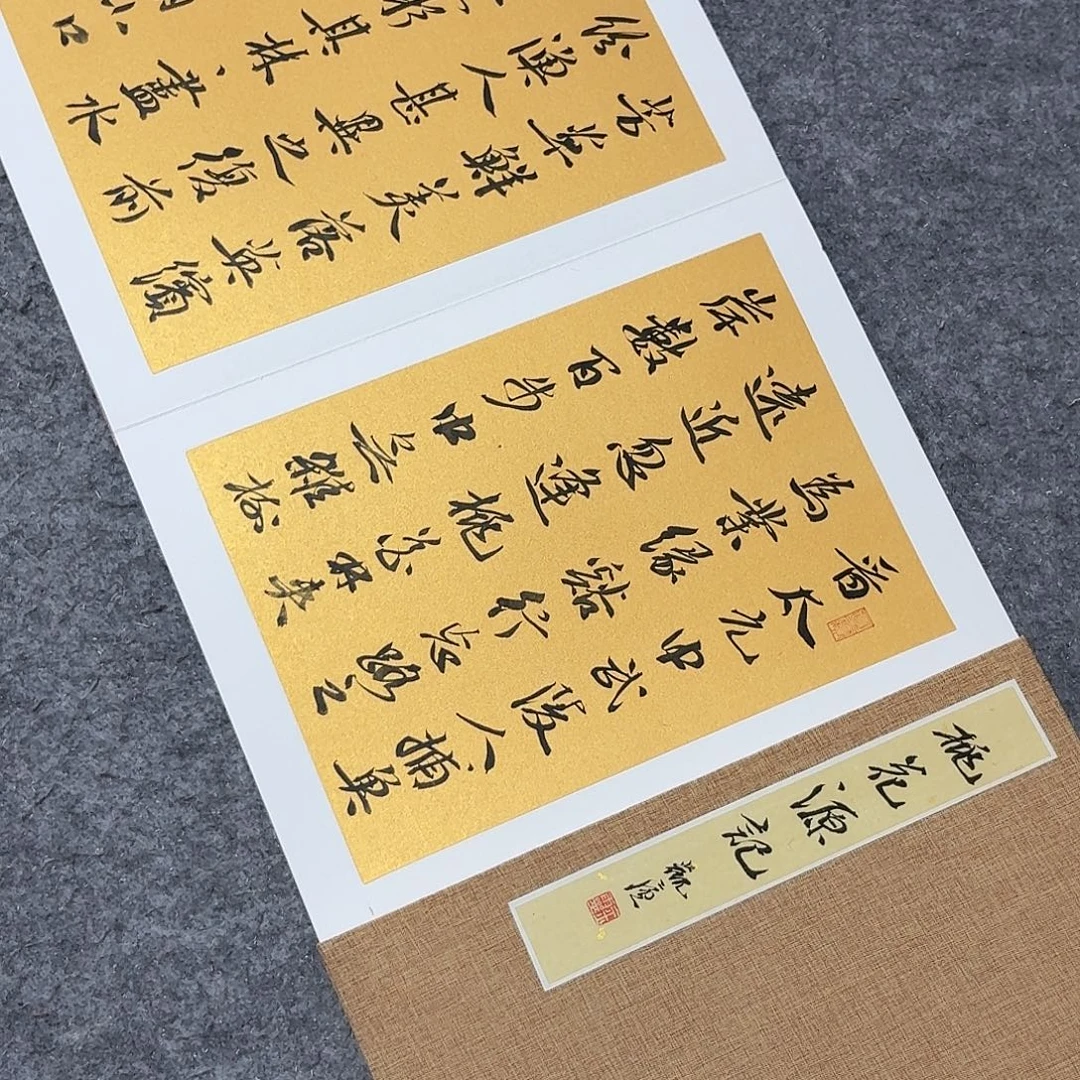 桃花源記
晉太元中武陵人捕魚
為業緣谿行忘路之
遠近忽逢桃花林夾
岸數百步中無雜樹
芳草鮮美落英繽
紛漁人甚異之復前
其林、盡水
小口